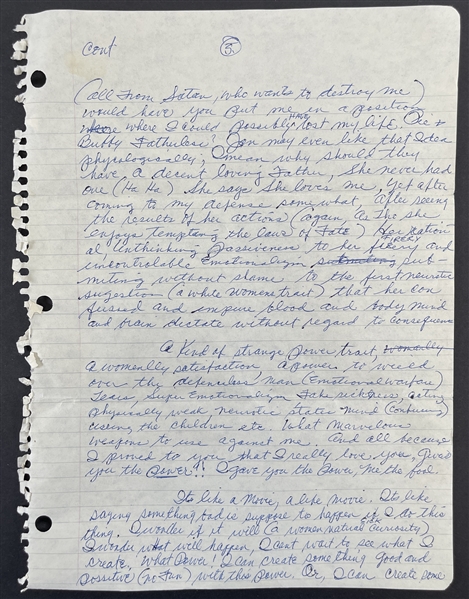 cont 3
(all From Satan, who wants to destroy me)
would have you put me in a position
where I could possibly HAVE lost my life.
Bubby Fatherless? Jen may even like that Idea
physologically, I mean why should they
have, a decent loving Father, She never had
one (Ha Ha) She says She loves me, yet after
coming to my defense somewhat, after seeing
the results of her actions (again, as The she
enjoys tempting the laws of Fate) Her nation
al, unthinking passiveness to her and
uncontrolable Emotionalism sub-
miting without shame to the first neurotic
sugestion (a white womens trait) that her con
fused and impure blood and body mind
and brain dictate without regard to consequence
A Kind of strange power trait,
a womenlly satisfaction, a power to wield
over the defenseless man (Emotional warfare)
Tears, Super Emotionalism Fake sickness, acting
physically weak neurotic states mind (confusing)
useing the children etc. What marvelous
weapons to use against me. And all because
I proved to you that I really love you, Gives
you the Power!! I gave you the Power, Me the fool.
Its like a Move, a like movie. Its like
saying something bad is suppose to happen if I do this
thing. I wonder if it will (a women natural curiosity)
I wonder what will happen, I cent wait to see what I
create, What Power! I can create something good and
possitive (no Fun) with this power. Or, I can create some